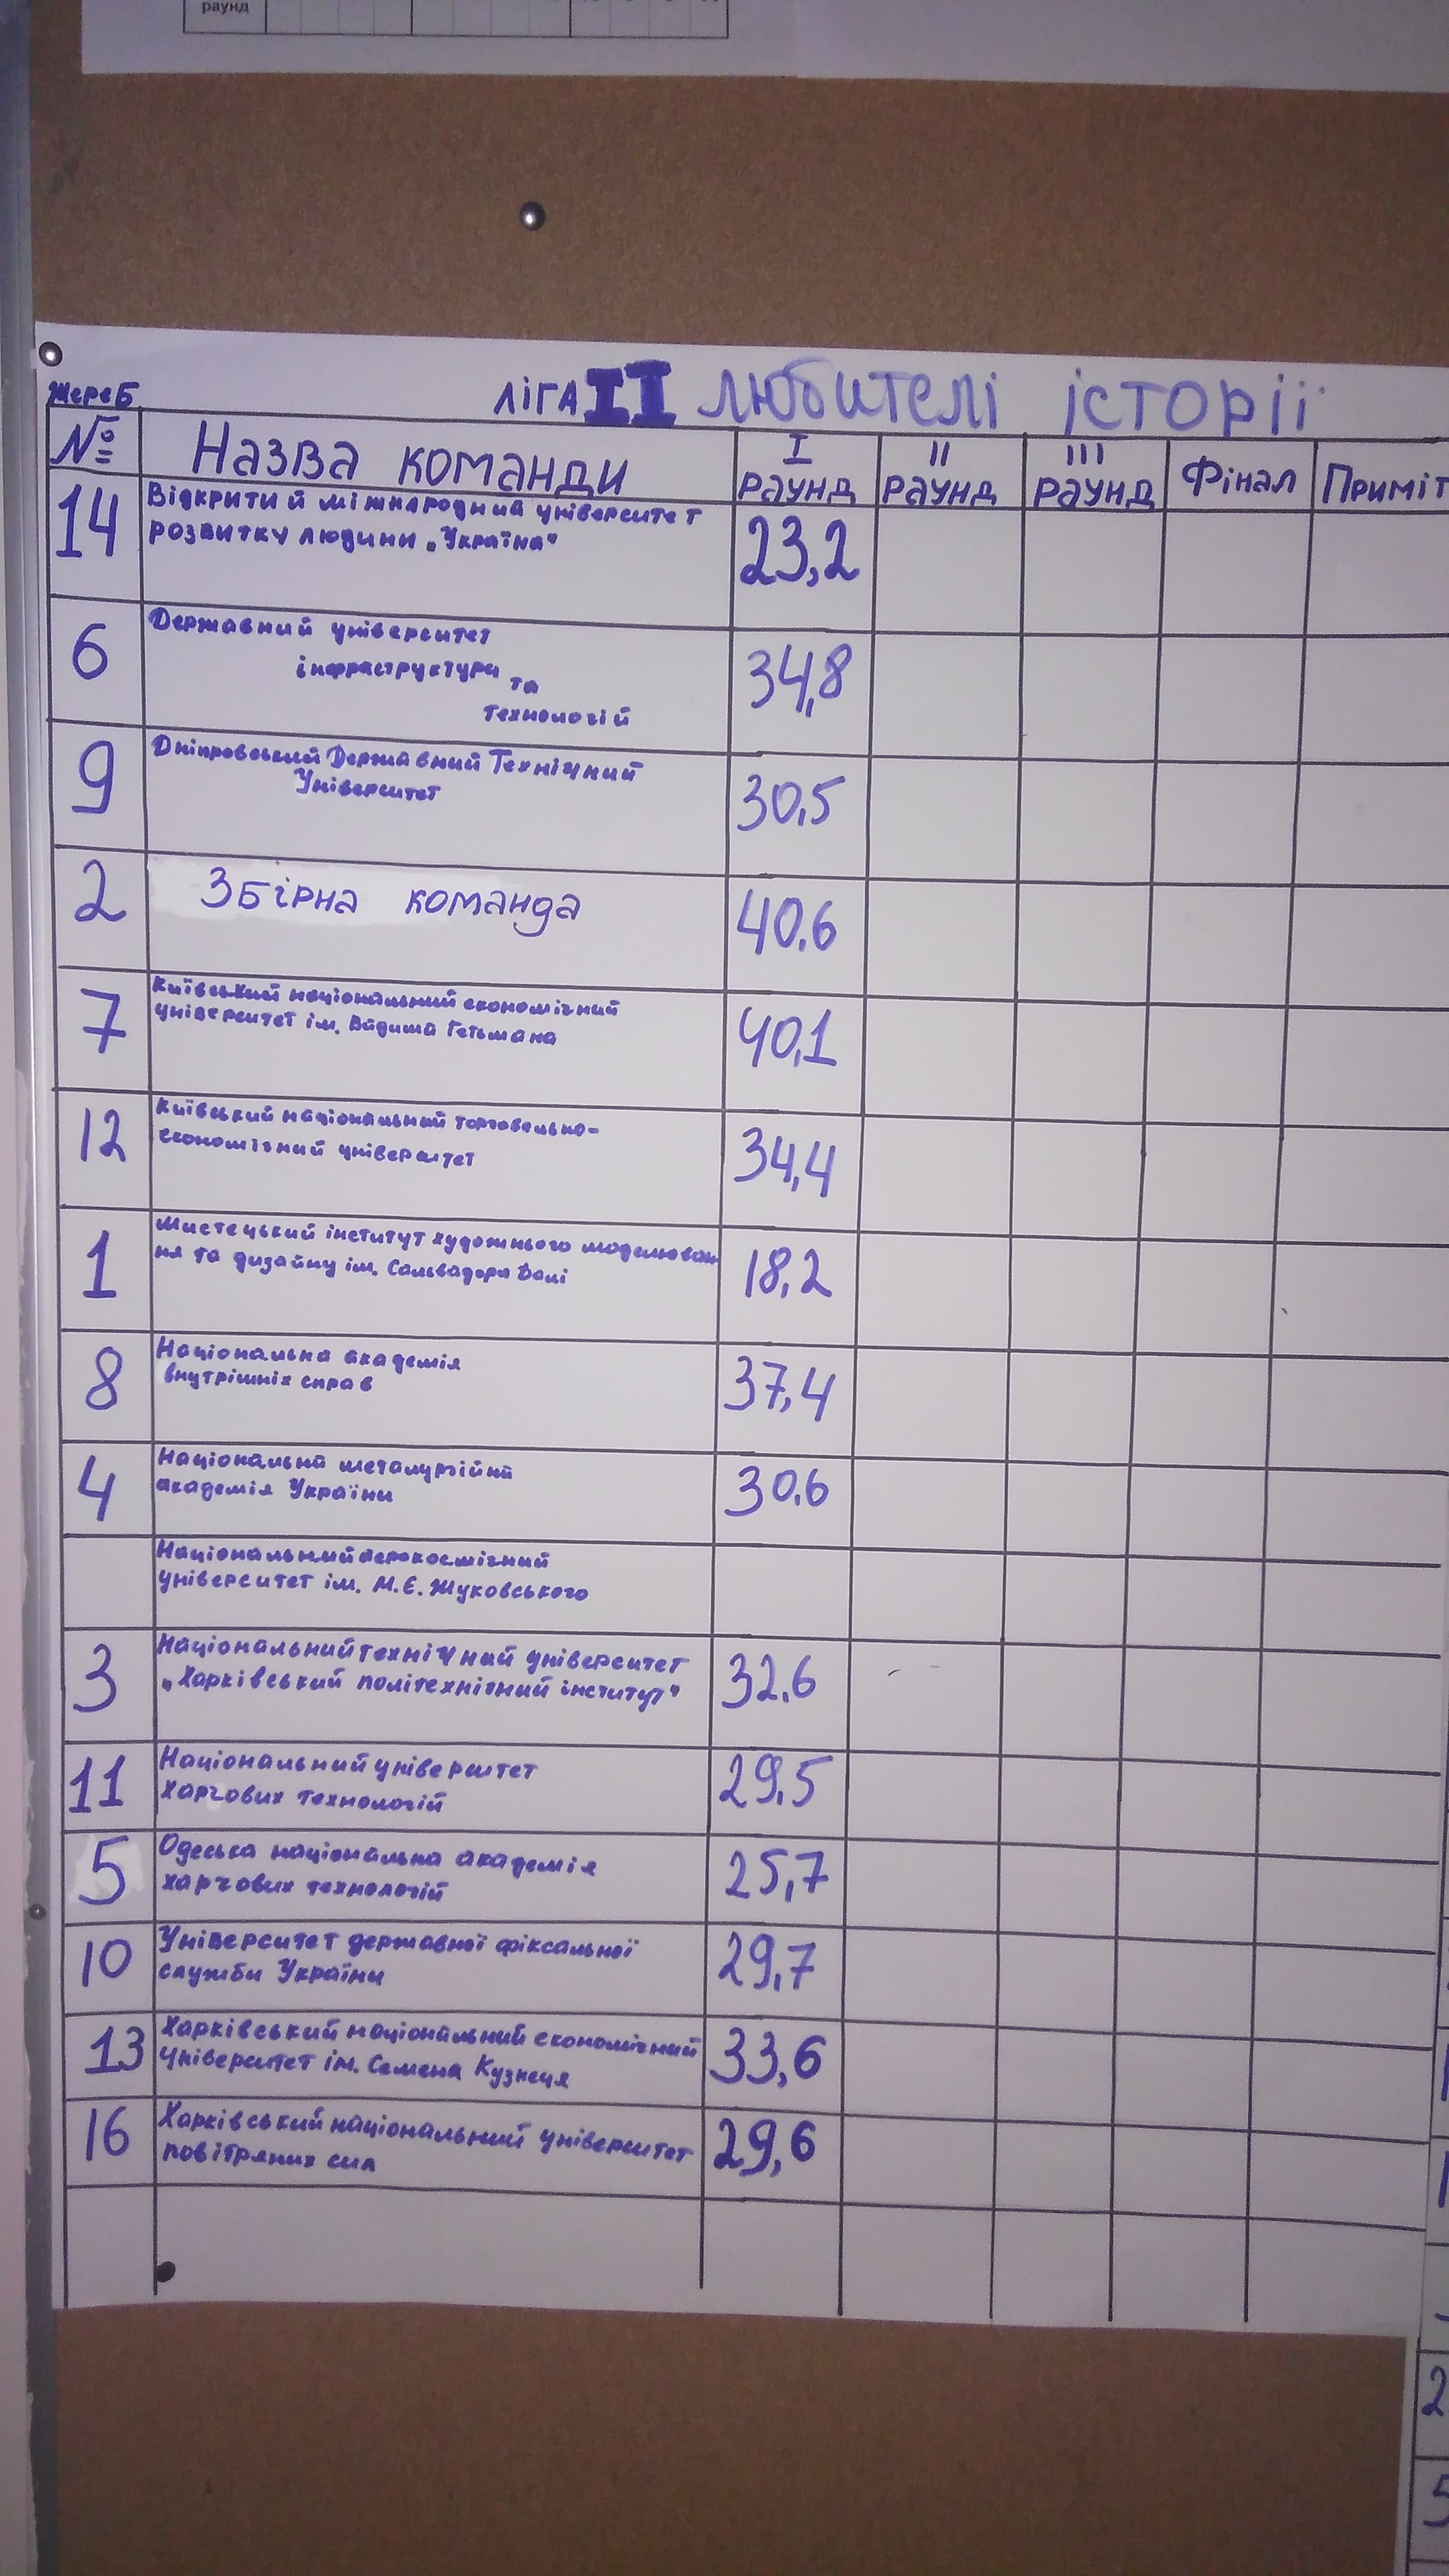 раунд
Жереб
ліга II любителі історії
№ Назва команди I раунд II раунд III раунд Фінал Приміт
14 Відкритий міжнародний університет
розвитку людини „Україна"
23,2
6 Державний університет
інфраструктури
та
технологій
34,8
9 Дніпровський Державний Технічний
Університет
30,5
2 Збірна команда 40.6
7 Київський національний економічний
університет ім. Вадима Гетьмана
40,1
12 Київський національний торговельно-
економічний університет
34,4
1 Мистецький інститут художнього моделюван
ня та дизайну ім. Сальвадора Далі
18,2
8 Національна академія
внутрішніх справ
37,4
4 Національна металургійна
академія України
30.6
Національний аерокосмічний
університет ім. М.Є. Жуковського
3 Національний технічний університет
„Харківський політехнічний інститут"
32.6
11 Національний університет
харчових технологій
29,5
5 Одеська національна академія
харчових технологій
25,7
10 Університет державної фіксальної
служби України
29,7
13 Харківський національний економічний
університет ім. Семена Кузнеця
33,6
16 Харківський національний університет
повітряних сил
29,6
2
5